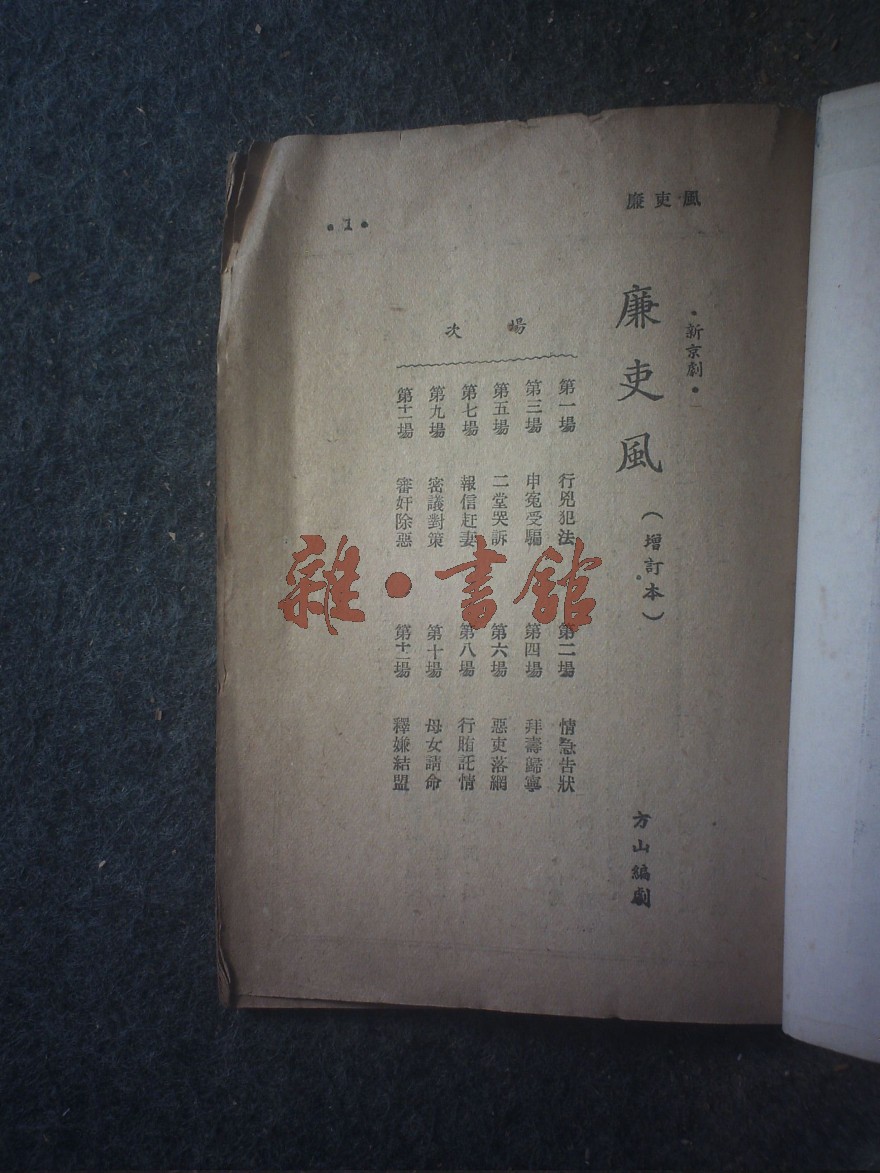 廉吏風
•1•
•新京劇•
廉吏風（增訂本）
方山編劇
場次
第一場 行兇犯法 第二場 情急告狀
第三場 申冤受騙 第四場 拜壽歸寧
第五場 二堂哭訴 第六場 惡吏落網
第七場 報信赶妻 第八場 行賄託情
第九場 密議對策 第十場 母女請命
第十一場 審奸除惡 第十二場 釋嫌結盟
雜·書館